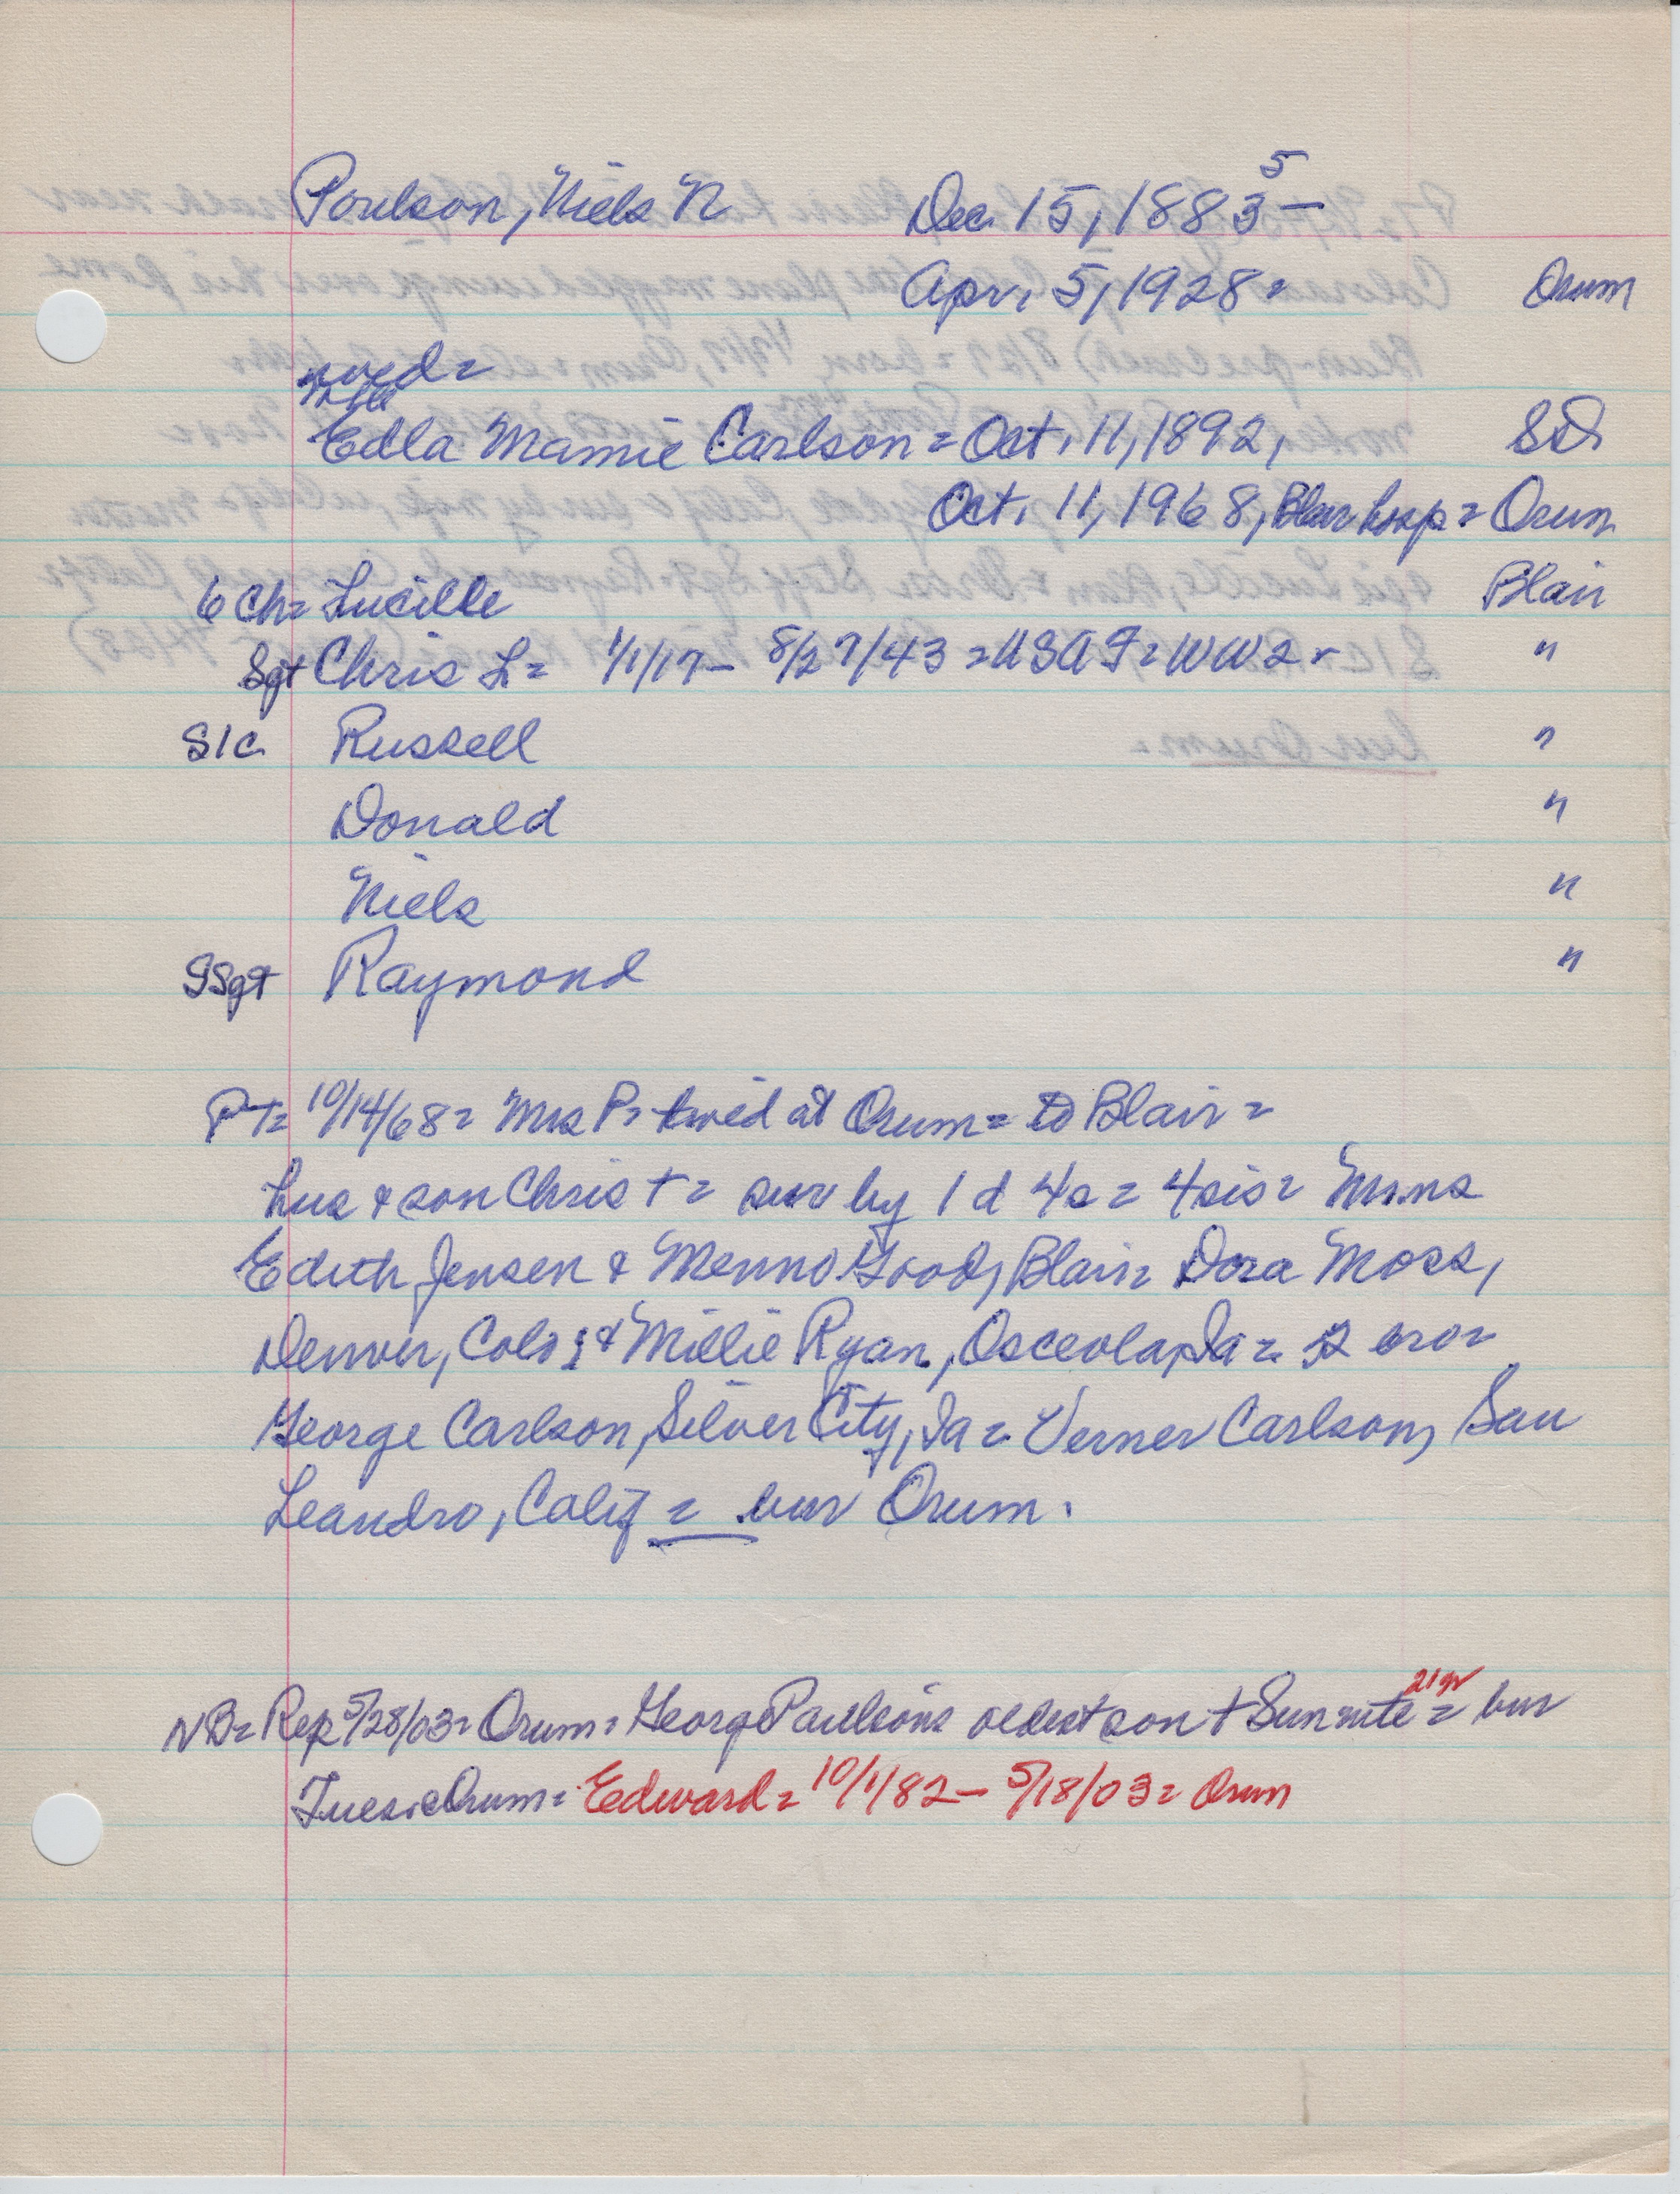 Poulson, Niels N Dec. 15, 1883 5 —
Apr. 5, 1928 = Orum
wed =
Edla Mamie Carlson = Oct. 11, 1892, SD
Oct. 11, 1968, Blair hosp = Orum
6 Ch = Lucille Blair
Sgt Chris L = 1/1/17 – 8/27/43 = USAF = WW2 = "
S1c Russell "
Donald "
Niels "
SSgt Raymond "
PT = 10/14/68 = Mrs P = at Orum = to Blair =
hus & son Chris + = surv by 1 d 4 s = 4 sis = Mmes
Edith Jensen & Menno Good, Blair = Dora Moss,
Denver, Colo; & Millie Ryan, Osceola, Ia = 2 bro =
George Carlson, Silver City, Ia = Verner Carlson, San
Leandro, Calif = bur Orum.
21 yr
NB = Rep 5/28/03 = Orum = George Paulson's oldest son + Sun nite = bur
Tues. @ Orum = Edward = 10/1/82 – 5/18/03 = Orum